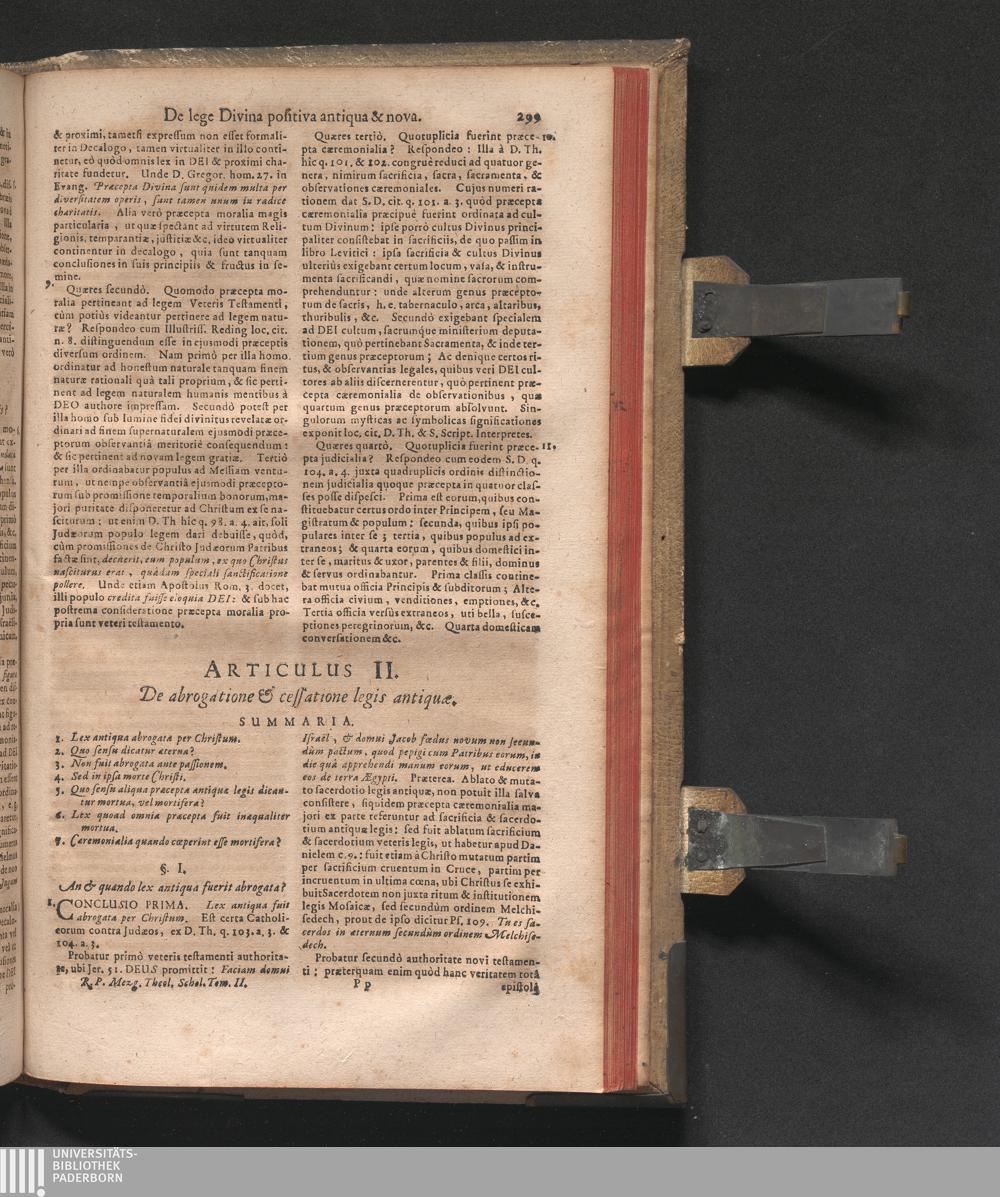 De lege Divina positiva antiqua & nova. 299
& proximi, tametsi expressum non esset formali-
ter in Decalogo, tamen virtualiter in illo conti-
netur, eò quòd omnis lex in DEI & proximi cha-
ritate fundetur. Unde D. Gregor. hom. 27. in
Evang. Præcepta Divina sunt quidem multa per
diversitatem operis, sunt tamen unum in radice
charitatis. Alia verò præcepta moralia magis
particularia, ut quæ spectant ad virtutem Reli-
gionis, temperantiæ, justitiæ &c. ideo virtualiter
continentur in decalogo, quia sunt tanquam
conclusiones in suis principiis & fructus in se-
mine.
9. Quæres secundò. Quomodo præcepta mo-
ralia pertineant ad legem Veteris Testamenti,
cùm potiùs videantur pertinere ad legem natu-
ræ? Respondeo cum Illustriss. Reding loc. cit.
n. 8. distinguendum esse in ejusmodi præceptis
diversum ordinem. Nam primò per illa homo
ordinatur ad honestum naturale tanquam finem
naturæ rationali quà tali proprium, & sic perti-
nent ad legem naturalem humanis mentibus à
DEO authore impressam. Secundò potest per
illa homo sub lumine fidei divinitus revelatæ or-
dinari ad finem supernaturalem ejusmodi præce-
ptorum observantiâ meritoriè consequendum:
& sic pertinent ad novam legem gratiæ. Tertiò
per illa ordinabatur populus ad Messiam ventu-
rum, ut nempe observantiâ ejusmodi præcepto-
rum sub promissione temporalium bonorum, ma-
jori puritate disponeretur ad Christum ex se na-
sciturum: ut enim D. Th. hîc q. 98. a. 4. ait, soli
Judæorum populo legem dari debuisse, quòd,
cùm promissiones de Christo Judæorum Patribus
factæ sint, decuerit, eum populum, ex quo Christus
nasciturus erat, quâdam speciali sanctificatione
pollere. Unde etiam Apostolus Rom. 3. docet,
illi populo credita fuisse eloquia DEI: & sub hac
postrema consideratione præcepta moralia pro-
pria sunt veteri testamento.
Quæres tertiò. Quotuplicia fuerint præce- 10.
pta cæremonialia? Respondeo: Illa à D. Th.
hîc q. 101. & 102. congruè reduci ad quatuor ge-
nera, nimirum sacrificia, sacra, sacramenta, &
observationes cæremoniales. Cujus numeri ra-
tionem dat S. D. cit. q. 101. a. 3. quòd præcepta
cæremonialia præcipuè fuerint ordinata ad cul-
tum Divinum: ipse porrò cultus Divinus princi-
paliter consistebat in sacrificiis, de quo passim in
libro Levitici: ipsa sacrificia & cultus Divinus
ulteriùs exigebant certum locum, vasa, & instru-
menta sacrificandi, quæ nomine sacrorum com-
prehenduntur: unde alterum genus præcepto-
rum de sacris, h. e. tabernaculo, arca, altaribus,
thuribulis, &c. Secundò exigebant specialem
ad DEI cultum, sacrumque ministerium deputa-
tionem, quò pertinebant Sacramenta, & inde ter-
tium genus præceptorum; Ac denique certos ri-
tus, & observantias legales, quibus veri DEI cul-
tores ab aliis discernerentur, quò pertinent præ-
cepta cæremonialia de observationibus, quæ
quartum genus præceptorum absolvunt. Sin-
gulorum mysticas ac symbolicas significationes
exponit loc. cit. D. Th. & S. Script. Interpretes.
Quæres quartò. Quotuplicia fuerint præce- 11.
pta judicialia? Respondeo cum eodem S. D. q.
104. a. 4. juxta quadruplicis ordinis distinctio-
nem judicialia quoque præcepta in quatuor clas-
ses posse dispesci. Prima est eorum, quibus con-
stituebatur certus ordo inter Principem, seu Ma-
gistratum & populum: secunda, quibus ipsi po-
pulares inter se; tertia, quibus populus ad ex-
traneos; & quarta eorum, quibus domestici in-
ter se, maritus & uxor, parentes & filii, dominus
& servus ordinabantur. Prima classis contine-
bat mutua officia Principis & subditorum; Alte-
ra officia civium, venditiones, emptiones, &c.
Tertia officia versùs extraneos, uti bella, susce-
ptiones peregrinorum, &c. Quarta domesticam
conversationem &c.
ARTICULUS II.
De abrogatione & cessatione legis antiquæ.
SUMMARIA.
1. Lex antiqua abrogata per Christum.
2. Quo sensu dicatur æterna?
3. Non fuit abrogata ante passionem.
4. Sed in ipsa morte Christi.
5. Quo sensu aliqua præcepta antiquæ legis dican-
tur mortua, vel mortifera?
6. Lex quoad omnia præcepta fuit inæqualiter
mortua.
7. Cæremonialia quando cœperint esse mortifera?
§. I.
An & quando lex antiqua fuerit abrogata?
1. CONCLUSIO PRIMA. Lex antiqua fuit
abrogata per Christum. Est certa Catholi-
eorum contra Judæos, ex D. Th. q. 103. a. 3. &
104. a. 3.
Probatur primò veteris testamenti authorita-
te, ubi Jer. 31. DEUS promittit: Faciam domui
R. P. Mezg. Theol. Schol. Tom. II.
Israël, & domui Jacob fœdus novum non secun-
dùm pactum, quod pepigi cum Patribus eorum, in
die quâ apprehendi manum eorum, ut educerem
eos de terra Ægypti. Præterea. Ablato & muta-
to sacerdotio legis antiquæ, non potuit illa salva
consistere, siquidem præcepta cæremonialia ma-
jori ex parte referuntur ad sacrificia & sacerdo-
tium antiquæ legis: sed fuit ablatum sacrificium
& sacerdotium veteris legis, ut habetur apud Da-
nielem c. 9.: fuit etiam à Christo mutatum partim
per sacrificium cruentum in Cruce, partim per
incruentum in ultima cœna, ubi Christus se exhi-
buit Sacerdotem non juxta ritum & institutionem
legis Mosaicæ, sed secundùm ordinem Melchi-
sedech, prout de ipso dicitur Ps. 109. Tu es sa-
cerdos in æternum secundùm ordinem Melchise-
dech.
Probatur secundò authoritate novi testamen-
ti: præterquam enim quòd hanc veritatem totâ
P p epistolâ
UNIVERSITÄTS-
BIBLIOTHEK
PADERBORN